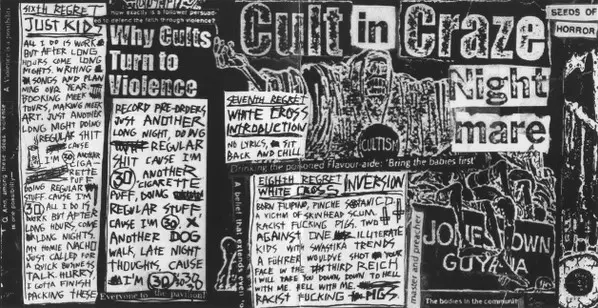 SIXTH REGRET
JUST KIDS
ALL I DO IS WORK
BUT AFTER LONG
HOURS COME LONG
NIGHTS. WRITING
SONGS AND PLAN
NING OUR YEAR
BOOKING MEEK
TOURS, MAKING MEEK
ART. JUST ANOTHER
LONG NIGHT DOING
REGULAR SHIT
CAUSE
I'M 30 ANOTHER
CIGA-
RETTE
PUFF
DOING REGULAR
STUFF CAUSE I'M
30 ALL I DO IS
WORK BUT AFTER
LONG HOURS COME
LONG NIGHTS.
MY HOMIE NACHO
JUST CALLED FOR
A QUICK BUSINESS
TALK. HURRY,
I GOTTA FINISH
PACKING THESE
how exactly is a follower persuad-
ed to defend the faith through violence?
Why Cults
Turn to
Violence
RECORD PRE-ORDERS
JUST ANOTHER
LONG NIGHT, DOING
REGULAR
SHIT CAUSE I'M
30 ANOTHER
CIGARETTE
PUFF, DOING
REGULAR STUFF
CAUSE I'M 30 X
ANOTHER DOG
WALK, LATE NIGHT
THOUGHTS, CAUSE
I'M 30
Everyone to the pavilion!
Cult in Craze
Night
mare
SEEDS OF
HORROR
SEVENTH REGRET
WHITE CROSS
INTRODUCTION
NO LYRICS, SIT
BACK AND CHILL
CULTISM
Drinking the poisoned Flavour-aide; 'Bring the babies first'
A belief that extends over
EIGHTH REGRET
WHITE CROSS INVERSION
BORN FILIPINO, PINCHE SATANICO
A VICTIM OF SKINHEAD SCUM.
RACIST FUCKING PIGS. TWO
AGAINST ONE ILLITERATE
KIDS WITH SWASTIKA TRENDS
A FÜHRER WOULD'VE SHOT YOUR
FACE IN THE THIRD REICH
I WILL TAKE YOU DOWN, DOWN TO HELL
WITH ME. HELL WITH ME.
RACIST FUCKING PIGS
master and preacher
JONESTOWN
GUYANA
The bodies in the communit